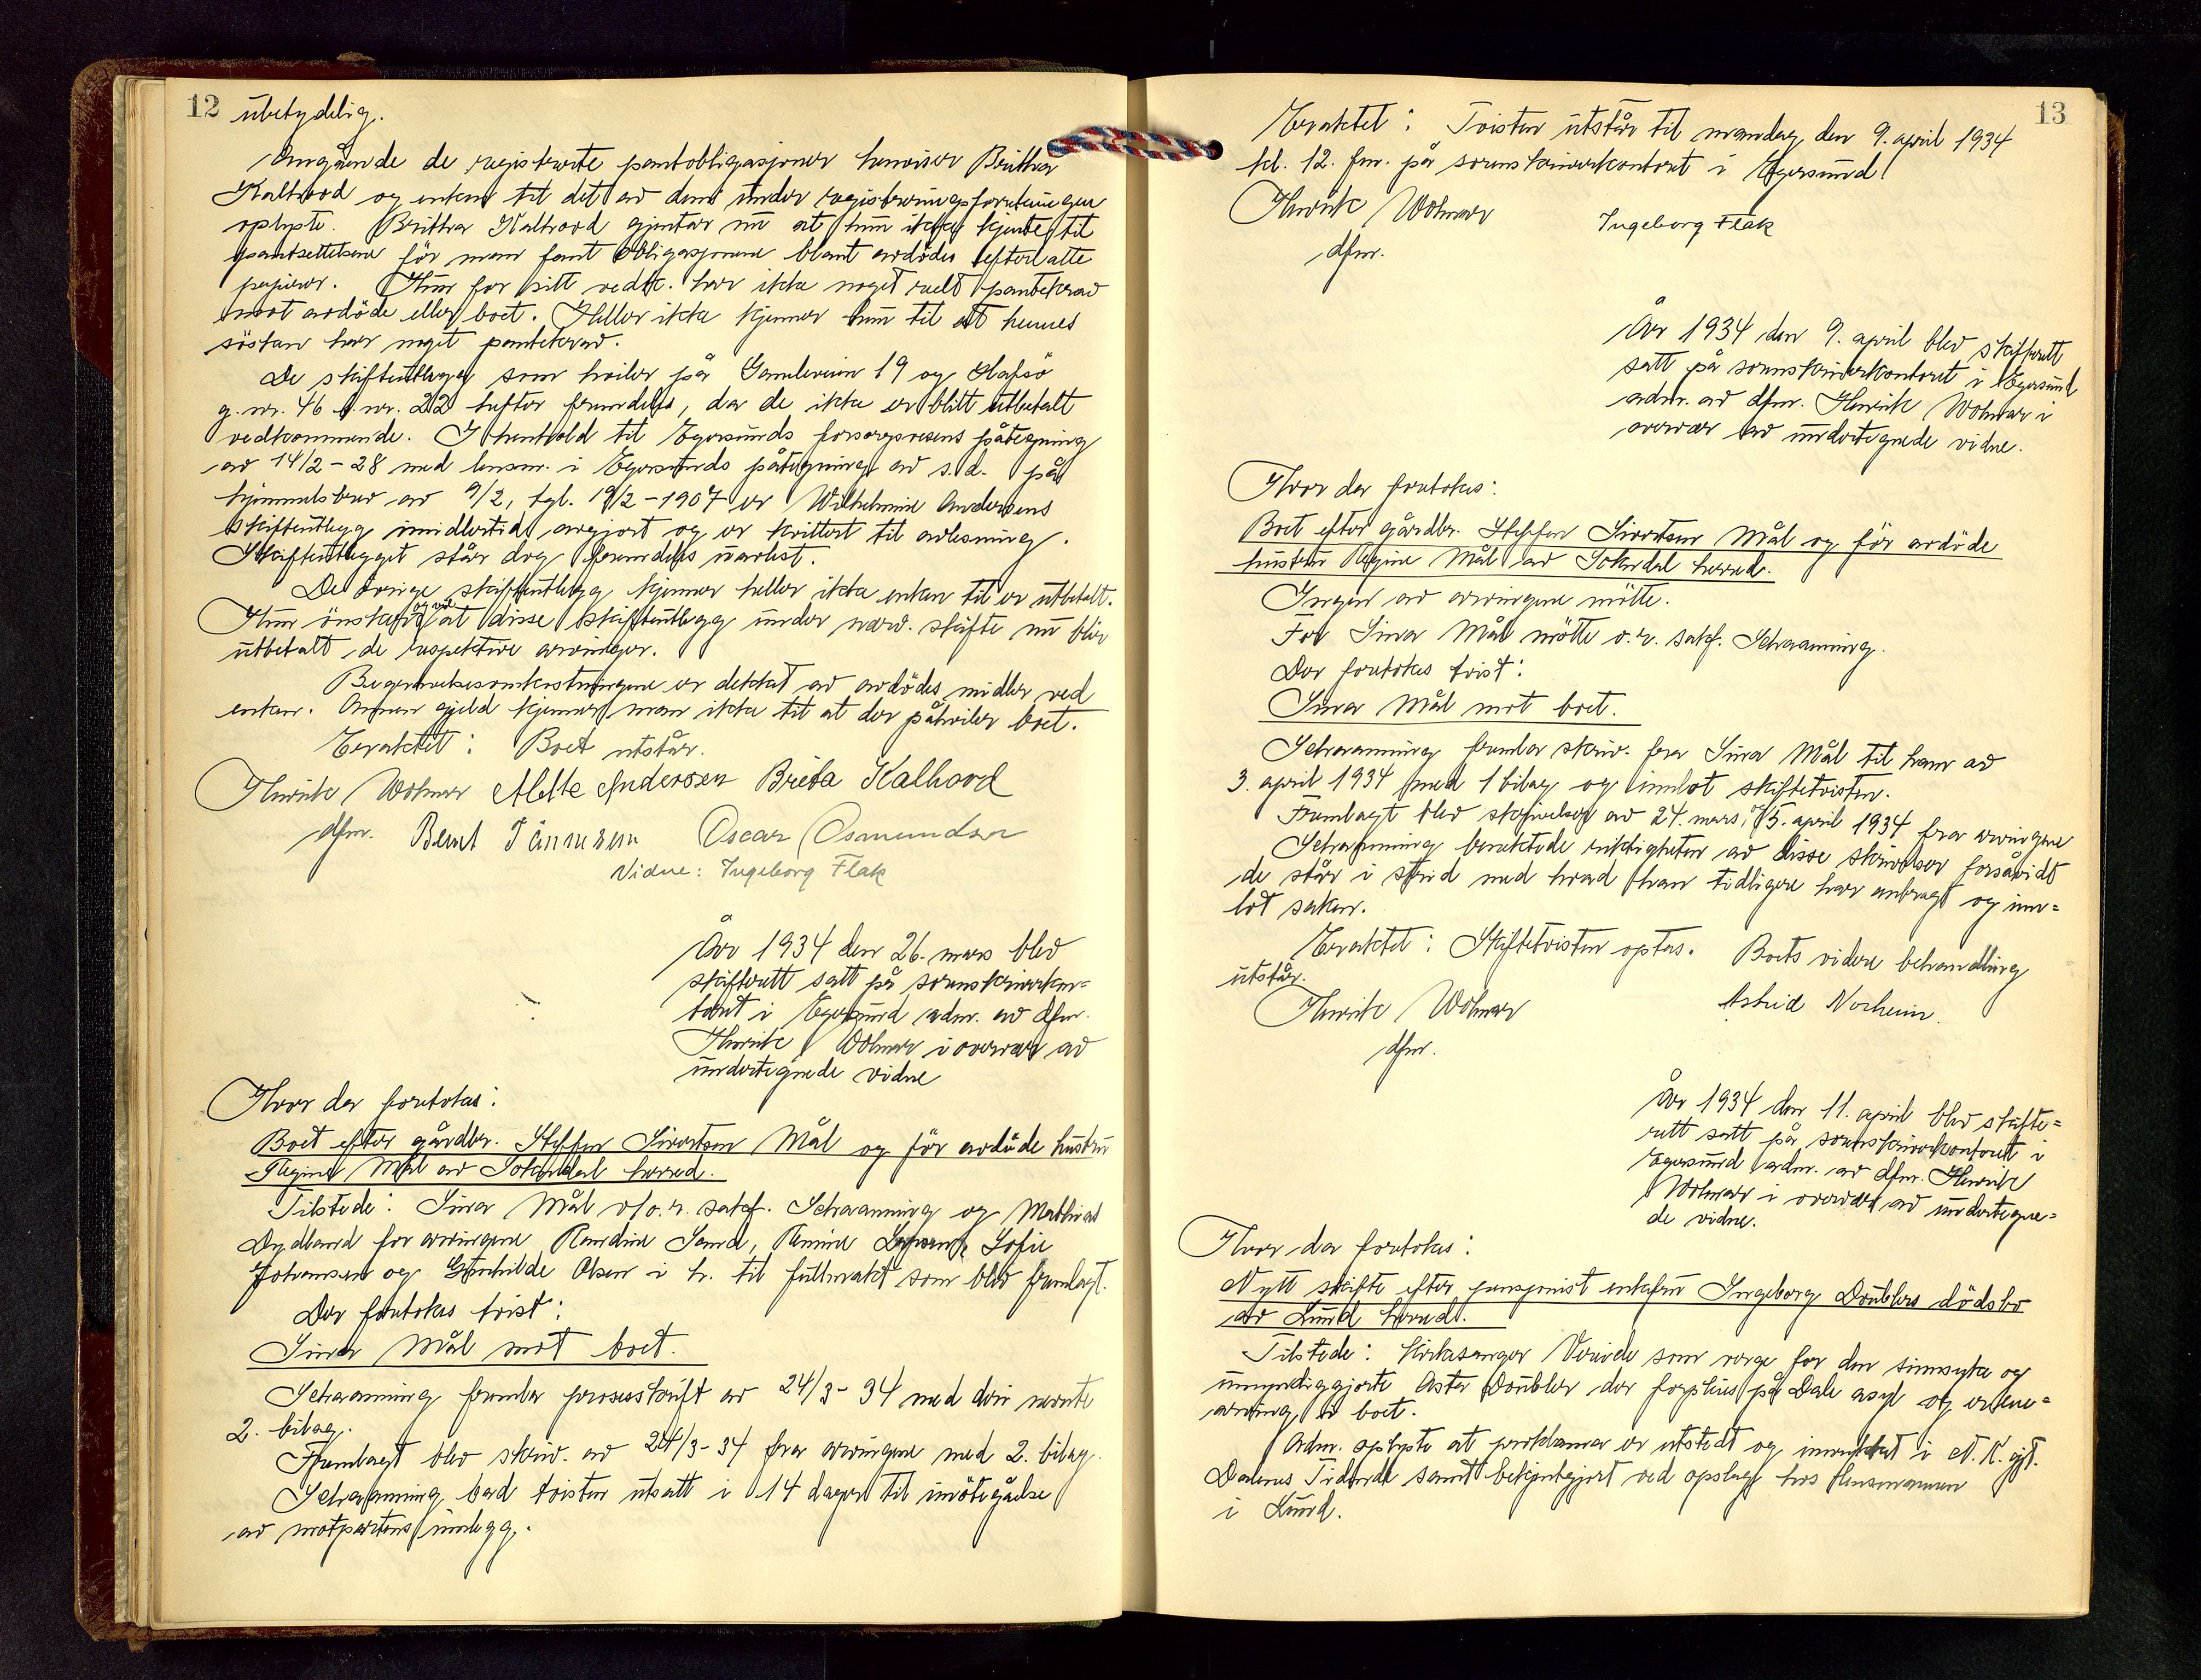 12 ubetydelig.
Angående de registrerte pantobligasjoner henviser Brithea
Kalhovd og enken til det av dem under registreringsforretningen
oplyste. Brithea Kalhovd gjentar nu at hun ikke kjente til
pantsettelsene før man fant obligasjonene blant avdødes efterlatte
papirer. Hun for sitt vedk. har ikke noget reelt pantekrav
mot avdøde eller boet. Heller ikke kjenner hun til at hennes
søsken har noget pantekrav.
De skifteutlegg som hviler på Gamleveien 19 og Hafsø
g.nr. 46 b.nr. 22 hefter fremdeles, da de ikke er blitt utbetalt
vedkommende. I henhold til Egersunds forsorgsvesens påtegning
av 14/2-28 med lensm. i Egersunds påtegning av s.d. på
hjemmelsbrev av 9/2, tgl. 19/2-1907 er Wilhelmine Andersens
skifteutlegg imidlertid avgjort og er kvittert til avlesning.
Skifteutlegget står dog fremdeles uavlest.
De øvrige skifteutlegg kjenner heller ikke enken til er utbetalt.
Hun ønsker også at disse skifteutlegg under nærv. skifte nu blir
utbetalt de respektive arvinger.
Begravelsesomkostningene er dekket av avdødes midler ved
enken. Annen gjeld kjenner man ikke til at der påhviler boet.
Eraktet: Boet utstår.
Henrik Wolmar Alette Andersen Brieta Kalhovd
dfm. Berent Tønnesen Oscar Osmundsen
Vidne: Ingeborg Flak
År 1934 den 26. mars blev
skifterett satt på sorenskriverkon=
toret i Egersund adm. av dfm.
Henrik Wolmar i overvær av
undertegnede vidne
Hvor der foretokes:
Boet efter gårdbr. Steffen Sivertsen Mål og før avdøde hustru
Regine Mål av Sokndal herred.
Tilstede: Sina Mål v/o.r. sakf. Schaanning og Mathias
Dydland for arvingene Randine Sand, Ramine Sofie
Johansen og Gunhilde Olsen i h. til fullmakt som blev fremlagt.
Der foretokes tvist:
Sina Mål mot boet.
Schaanning fremla prosesskrift av 24/3-34 med deri nevnte
2. bilag.
Fremlagt blev skriv. av 24/3-34 fra arvingene med 2. bilag.
Schaanning bad tvisten utsatt i 14 dager til imøtegåelse
av motpartens innlegg.
13
Eraktet: Tvisten utstår til mandag den 9. april 1934
kl. 12. fm. på sorenskriverkontoret i Egersund.
Henrik Wolmar Ingeborg Flak
dfm.
År 1934 den 9. april blev skifterett
satt på sorenskriverkontoret i Egersund
adm. av dfm. Henrik Wolmar i
overvær av undertegnede vidne.
Hvor der foretokes:
Boet efter gårdbr. Steffen Sivertsen Mål og før avdøde
hustru Regine Mål av Sokndal herred.
Ingen av arvingene møtte.
For Sina Mål møtte o.r. sakf. Schaanning.
Der foretokes tvist:
Sina Mål mot boet.
Schaanning fremla skriv. fra Sina Mål til ham av
3. april 1934 med 1 bilag og innlot skiftetvisten.
Fremlagt blev skrivelser av 24. mars, 5. april 1934 fra arvingene
Schaanning benektede riktigheten av disse skrivelser forsåvidt
de står i strid med hvad han tidligere har anbragt og inn=
lot saken.
Eraktet: Skiftetvisten optas. Boets videre behandling
utstår.
Henrik Wolmar Astrid Norheim.
dfm.
År 1934 den 11. april blev skifte=
rett satt på sorenskriverkontoret i
Egersund adm. av dfm. Henrik
Wolmar i overvær av undertegne=
de vidne.
Hvor der foretokes:
Nytt skifte efter pensjonist enkefru Ingeborg Doublers dødsbo
av Lund herred.
Tilstede: Kirkesanger som verge for den sinnsyke og
umyndiggjorte Asta Doubler der forpleies på Dale asyl og er ene=
arving i boet.
Adm. oplyste at proklama er utstedt og innrykket i N. K. gjt.
Dalenes Tidende samt bekjentgjort ved opslag hos lensmannen
i Lund.